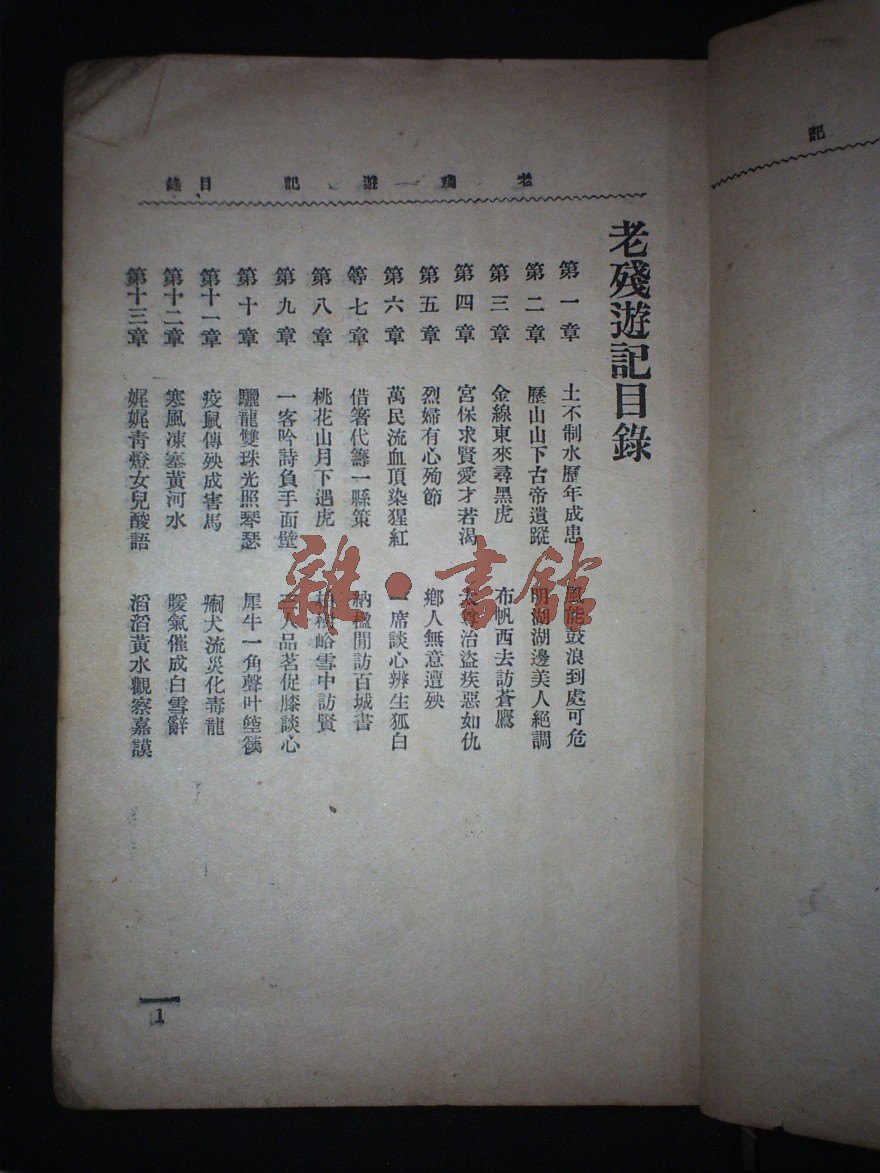 老殘遊記 目錄
記
老殘遊記目錄
第一章 土不制水歷年成患 風能鼓浪到處可危
第二章 歷山山下古帝遺蹤 明湖湖邊美人絕調
第三章 金線東來尋黑虎 布帆西去訪蒼鷹
第四章 宮保求賢愛才若渴 太尊治盜疾惡如仇
第五章 烈婦有心殉節 鄉人無意遭殃
第六章 萬民流血頂染猩紅 一席談心辨生狐白
等七章 借箸代籌一縣策 納楹閒訪百城書
第八章 桃花山月下遇虎 柏樹峪雪中訪賢
第九章 一客吟詩負手面壁 三人品茗促膝談心
第十章 驪龍雙珠光照琴瑟 犀牛一角聲叶箜篌
第十一章 疫鼠傳殃成害馬 瘈犬流災化毒龍
第十二章 寒風凍塞黃河水 暖氣催成白雪辭
第十三章 娓娓青燈女兒酸語 滔滔黃水觀察嘉謨
1
雜·書館